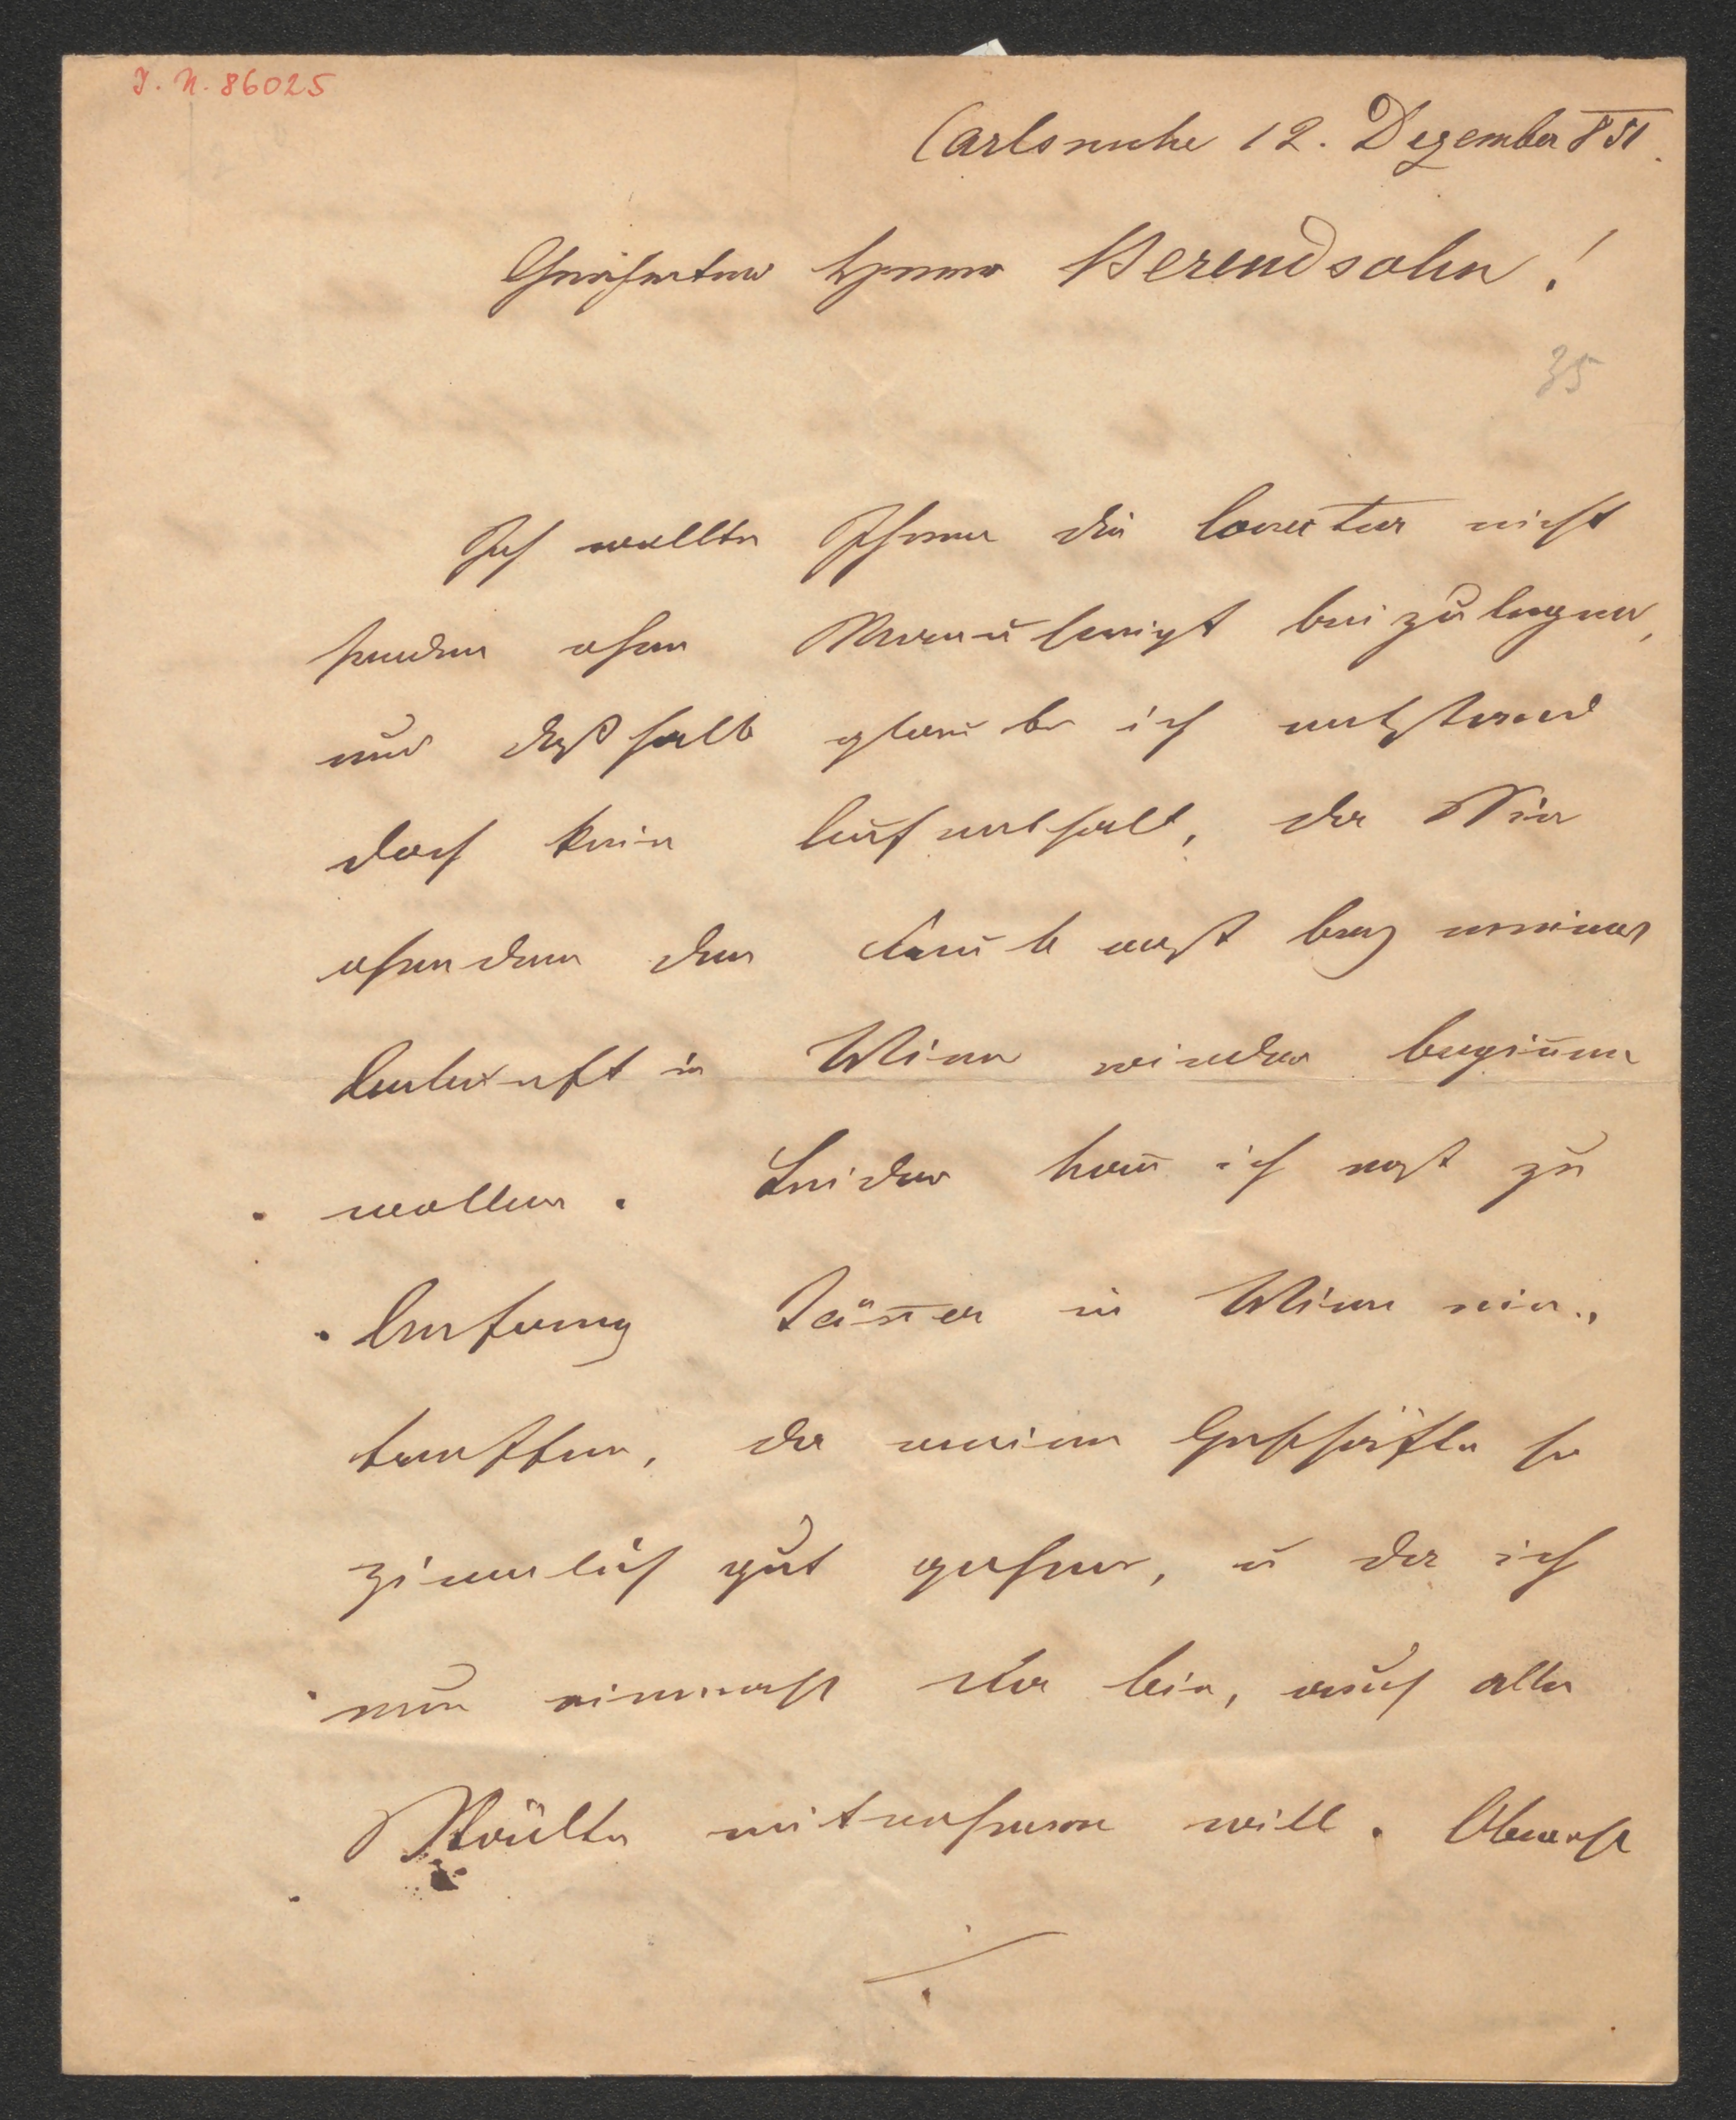 J. N. 86025
Carlsruhe 12. Dezember 851.
Geehrtester Herr Berendsohn!
35
Ich wollte Ihnen die Correctur nicht
senden ohne Manuscript beizulegen,
und deßhalb glaube ich entstand
doch kein Aufenthalt, da Sie
ohnedem den Druck erst bey meiner
Ankunft in Wien wieder beginnen
wollen. Leider kann ich erst zu
Anfang Jänner in Wien ein-
treffen, da meine Geschäfte so
ziemlich gut gehen, u da ich
nun einmahl da bin, auch alle
Städte mitnehmen will.